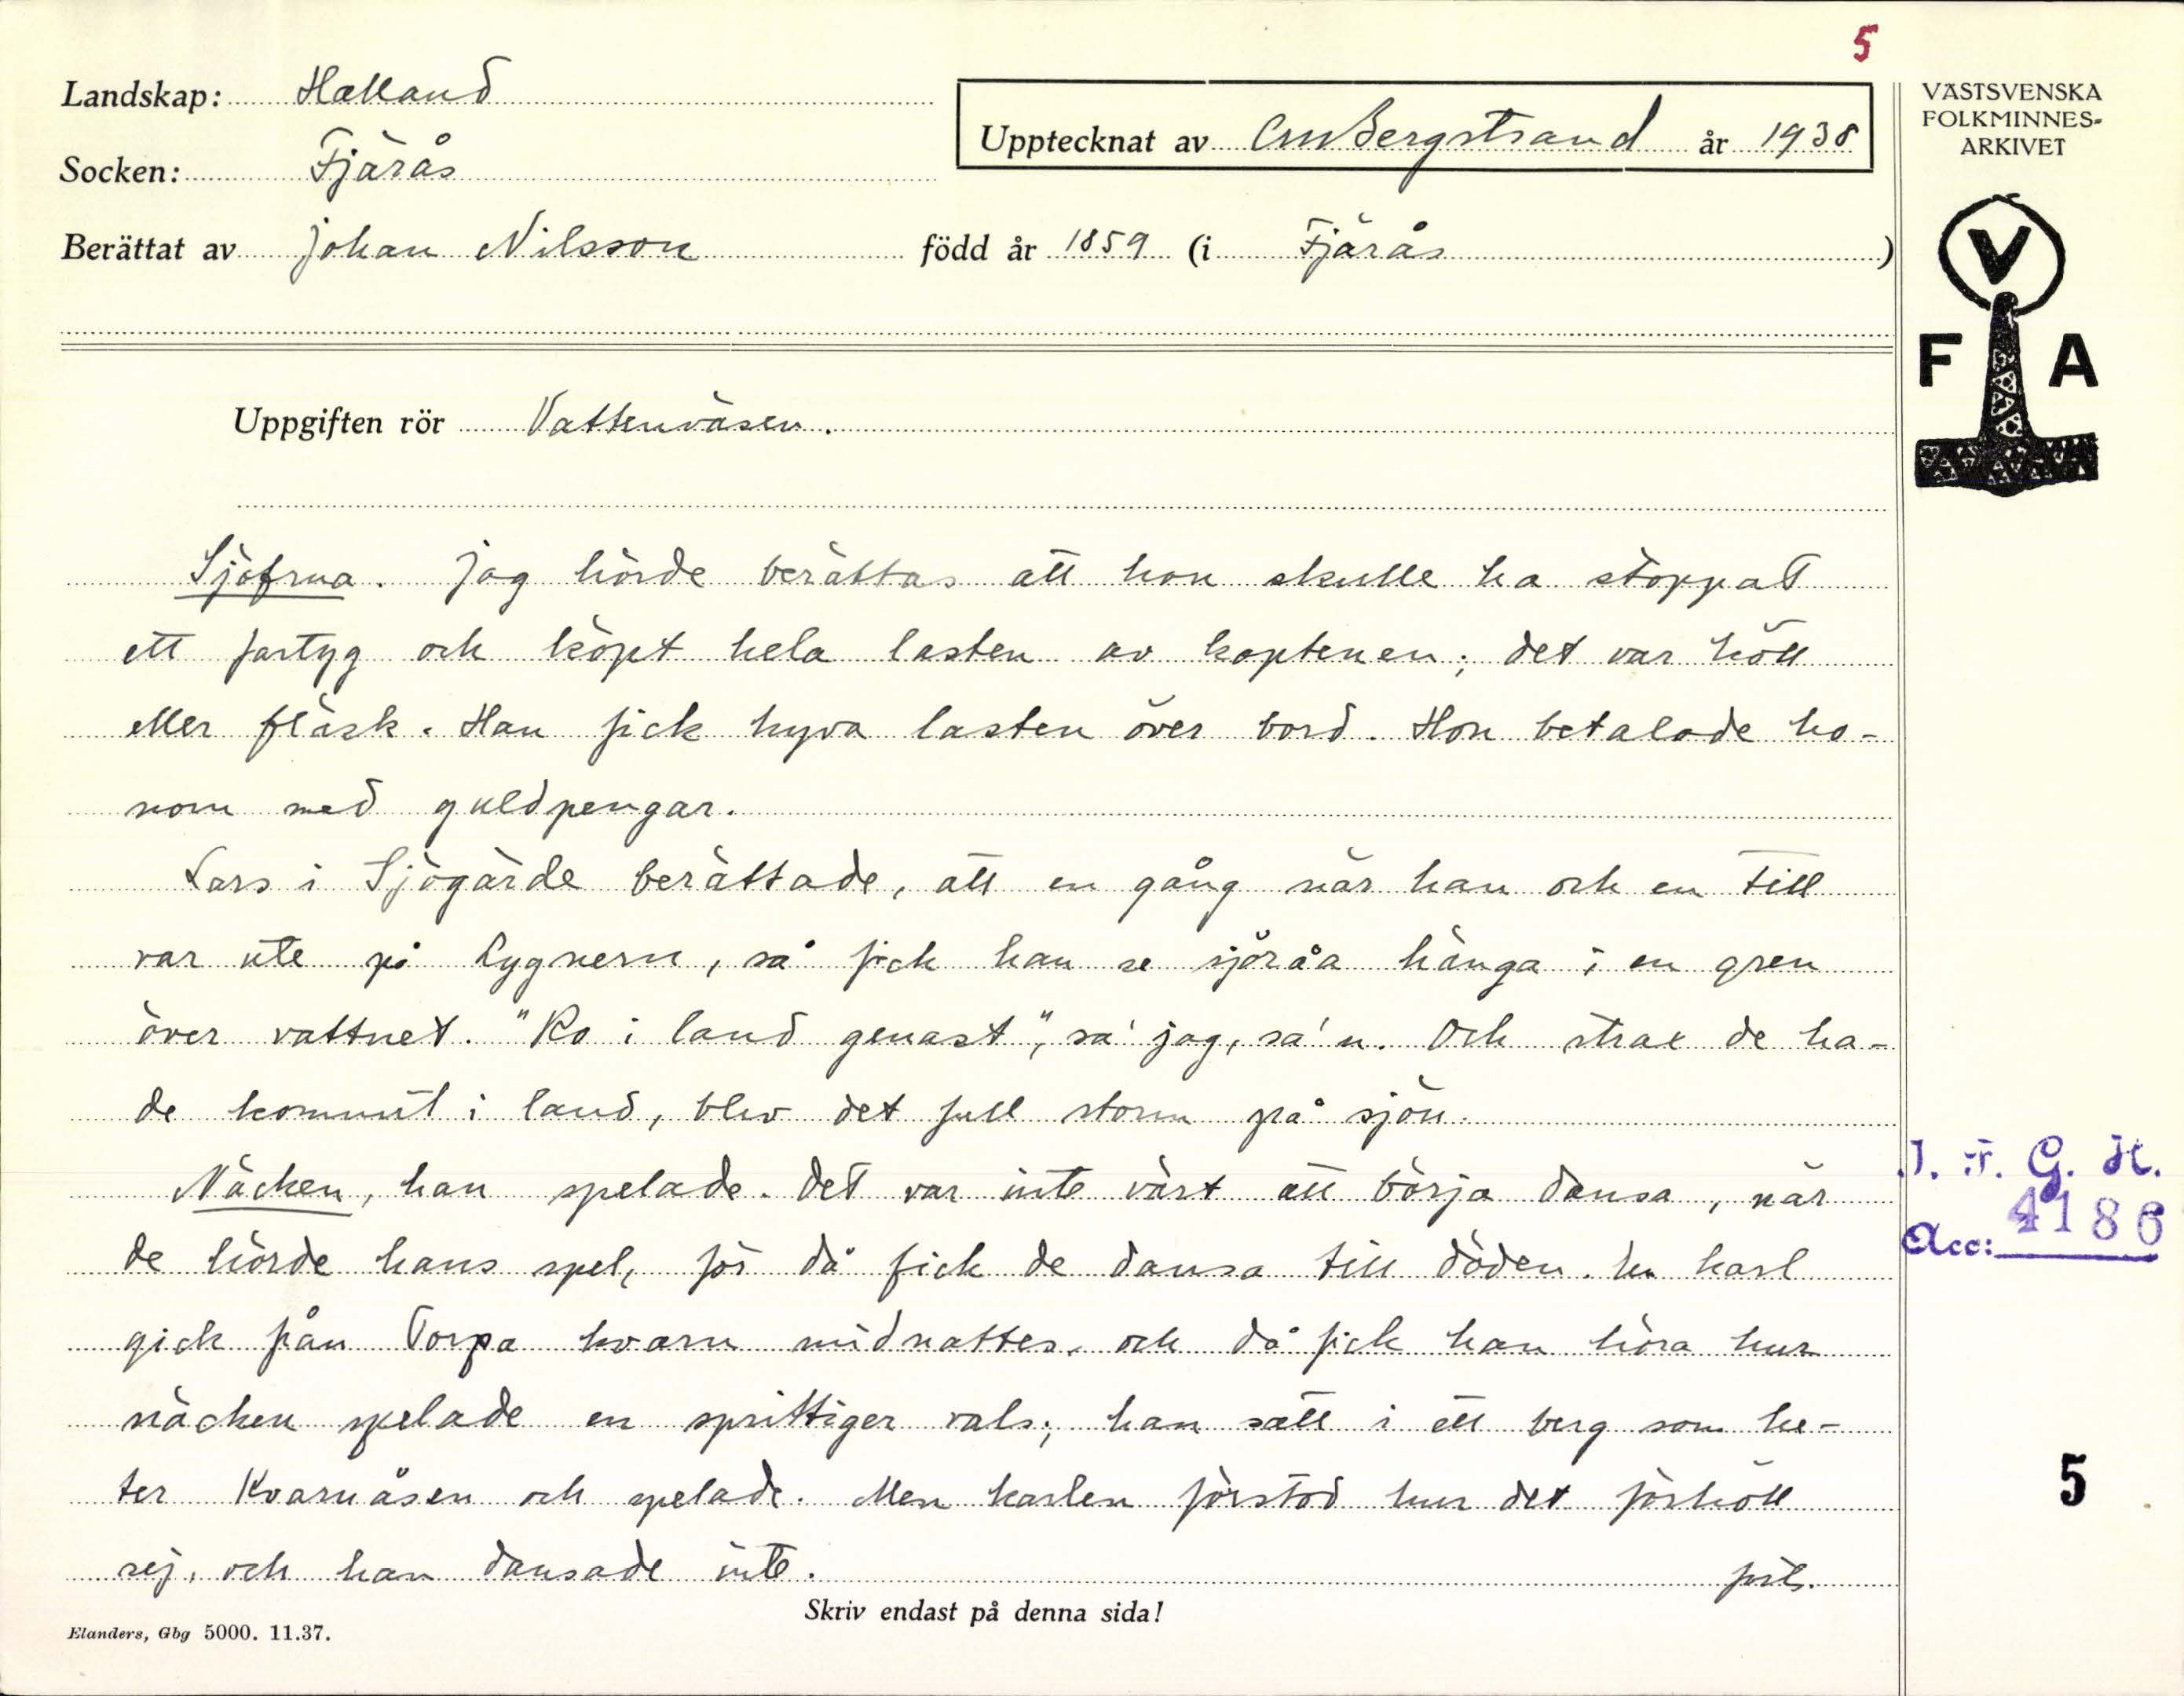 5
Landskap: Halland
Upptecknat av CMBergstrand år 1938
Socken: Fjärås
Berättat av Johan Nilsson född år 1859 (i Fjärås )
VÄSTSVENSKA
FOLKMINNES-
ARKIVET
V
F A
Uppgiften rör Vattenväsen.
Sjöfrua. Jag hörde berättas att hon skulle ha stoppat
ett fartyg och köpt hela lasten av kaptenen; det var kött
eller fläsk. Han fick hyva lasten över bord. Hon betalade ho-
nom med guldpengar.
Lars i Sjögärde berättade, att en gång när han och en till
var ute på Lygnern, så fick han se sjöråa hänga i en gren
över vattnet. "Ro i land genast", sa' jag, sa'n. Och strax de ha-
de kommit i land, blev det full storm på sjön.
Näcken, han spelade. Det var inte värt att börja dansa, när
de hörde hans spel, för då fick de dansa till döden. En karl
gick från Torpa kvarn midnattes, och då fick han höra hur
näcken spelade en sprittiger vals; han satt i ett berg som he-
ter Kvarnåsen och spelade. Men karlen förstod hur det förhöll
sej, och han dansade inte. forts.
I. F. G. H.
Acc: 4186
5
Skriv endast på denna sida!
Elanders, Gbg 5000. 11.37.